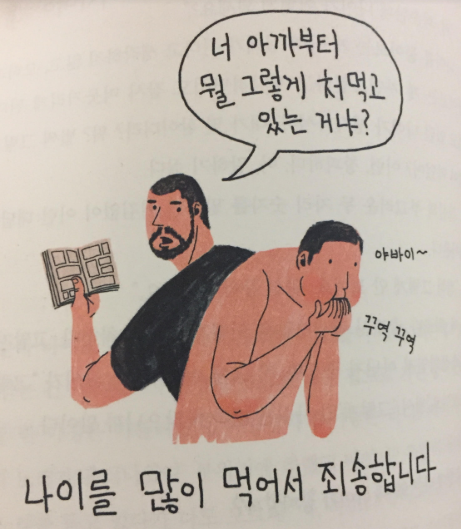 너 아까부터
뭘 그렇게 처먹고
있는 거냐?
야바이~
꾸역 꾸역
나이를 많이 먹어서 죄송합니다